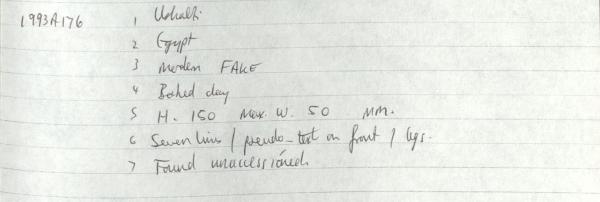 1993A176 1 Ushabti
2 Egypt
3 Modern FAKE
4 Baked clay
5 H. 150 Max. W. 50 MM.
6 Seven lines / pseudo-text on front / legs.
7 Found unaccessioned.